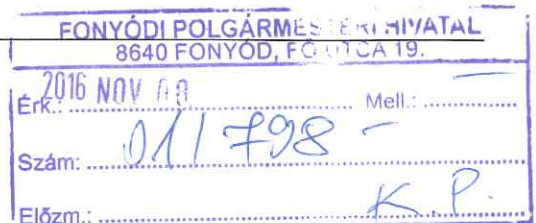 FONYÓDI POLGÁRMESTERI HIVATAL
8640 FONYÓD, FŐ UTCA 19.
Érk.: 2016 NOV Mell.:
Szám: 01/798 -
Előzm.: K.P.